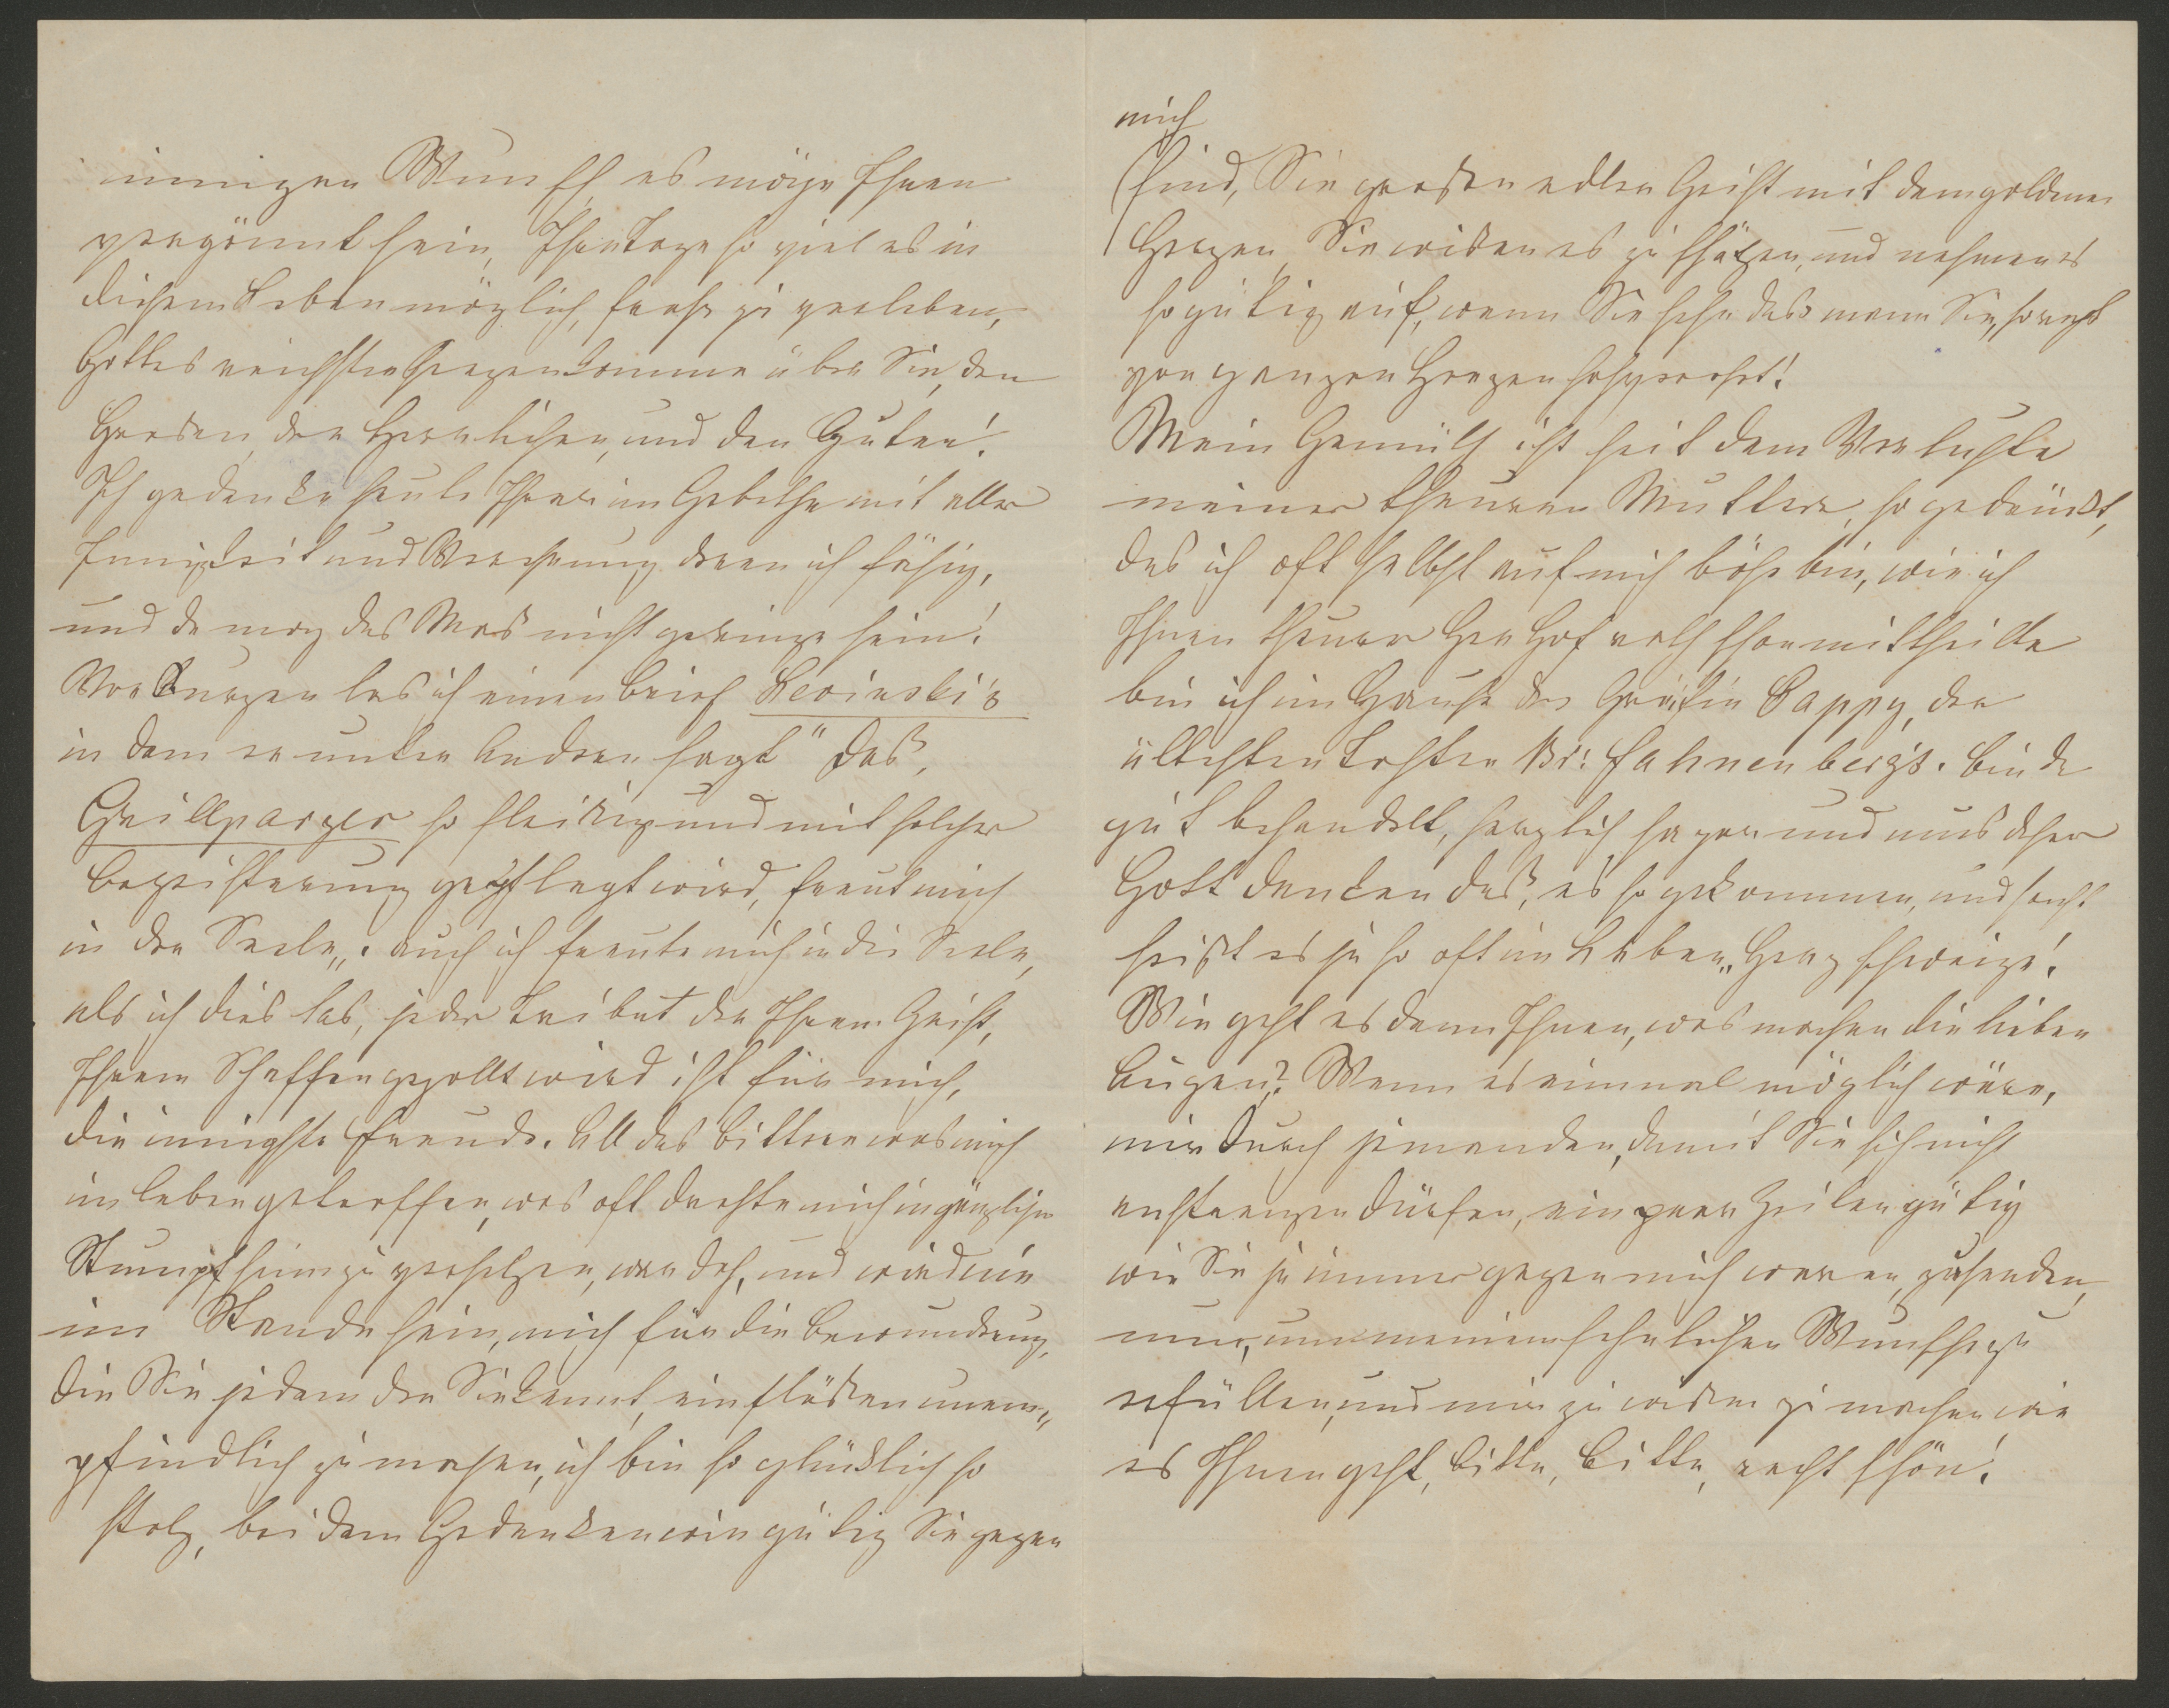 innigen Wunsch es möge Ihnen
vergönnt sein, Ihre Tage so viel es in
diesem Leben möglich, froh zu verleben,
Gottes reichster Segen komme über Sie, den
Großen, den Herrlichen, und den Guten!
Ich gedenke heute Ihrer im Gebethe mit aller
Innigkeit und Verehrung deren ich fähig,
und da mag das Maß nicht geringe sein!
Vor Kurzen las ich einen Brief Lewinski's
in dem er unter Andren sagt "daß,
Grillparzer so fleißig und mit solcher
Begeisterung gepflegt wird, freut mich
in der Seele„. auch ich freute mich in die Seele,
als ich dies las, jeder Tribut der Ihrem Geist,
Ihrem Schaffen gezollt wird ist für mich,
die innigste Freude. All das bittere was mich
im Leben getroffen, was oft drohte mich in gänzlichen
Stumpfsinn zu versetzen, war doch, und wird nie
im Stande sein, mich für die Bewunderung,
die Sie jedem der Sie kennt, einflößen unem„
pfindlich zu machen, ich bin so glücklich so
stolz, bei dem Gedenken wie gütig Sie gegen
mich
sind, Sie großer edler Geist mit dem goldenen
Herzen, Sie wißen es zu schätzen, und nehmen es
so gütig auf, wenn Sie sehn das mann Sie, so recht
von ganzen Herzen hochverehrt!
Mein Gemüth ist seit dem Verluste
meiner theuren Mutter, so gedrückt,
das ich oft selbst auf mich böse bin, wie ich
Ihnen theurer Her Hofrath schon mittheilte
bin ich im Hause der Gräfin Cappy, der
ältesten Tochter Br: Fahnenbergs. bin da
gut behandelt, herzlich sogar und mus daher
Gott danken daß, es so gekommen, und sonst
heißt es ja so oft im Leben „Herz schweige!
Wie geht es denn Ihnen, was machen die lieben
Augen? Wenn es einmal möglich wäre,
mir durch jemanden, damit Sie sich nicht
anstrengen dürfen, ein paar Zeilen gütig
wie Sie ja immer gegen mich waren, zusenden,
nur, um meinem sehnlichen Wunsche zu
erfüllen, und mir zu wißen zu machen wie
es Ihnen geht, bitte, bitte, recht schön!